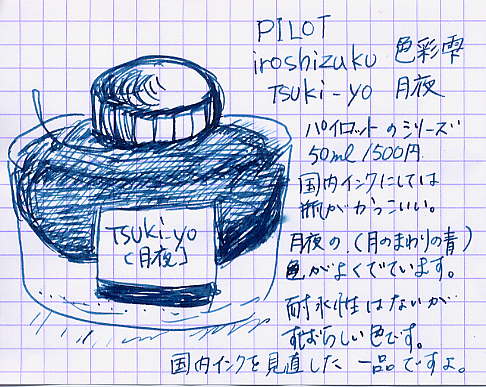 PILOT
iroshizuku 色彩雫
Tsuki-yo 月夜
パイロットのシリーズ
50ml 1500円
国内インクにしては
瓶がかっこいい。
月夜の（月のまわりの青）
色がよくでています。
耐水性はないが
すばらしい色です。
国内インクを見直した一品ですよ。
Tsuki-yo
［月夜］